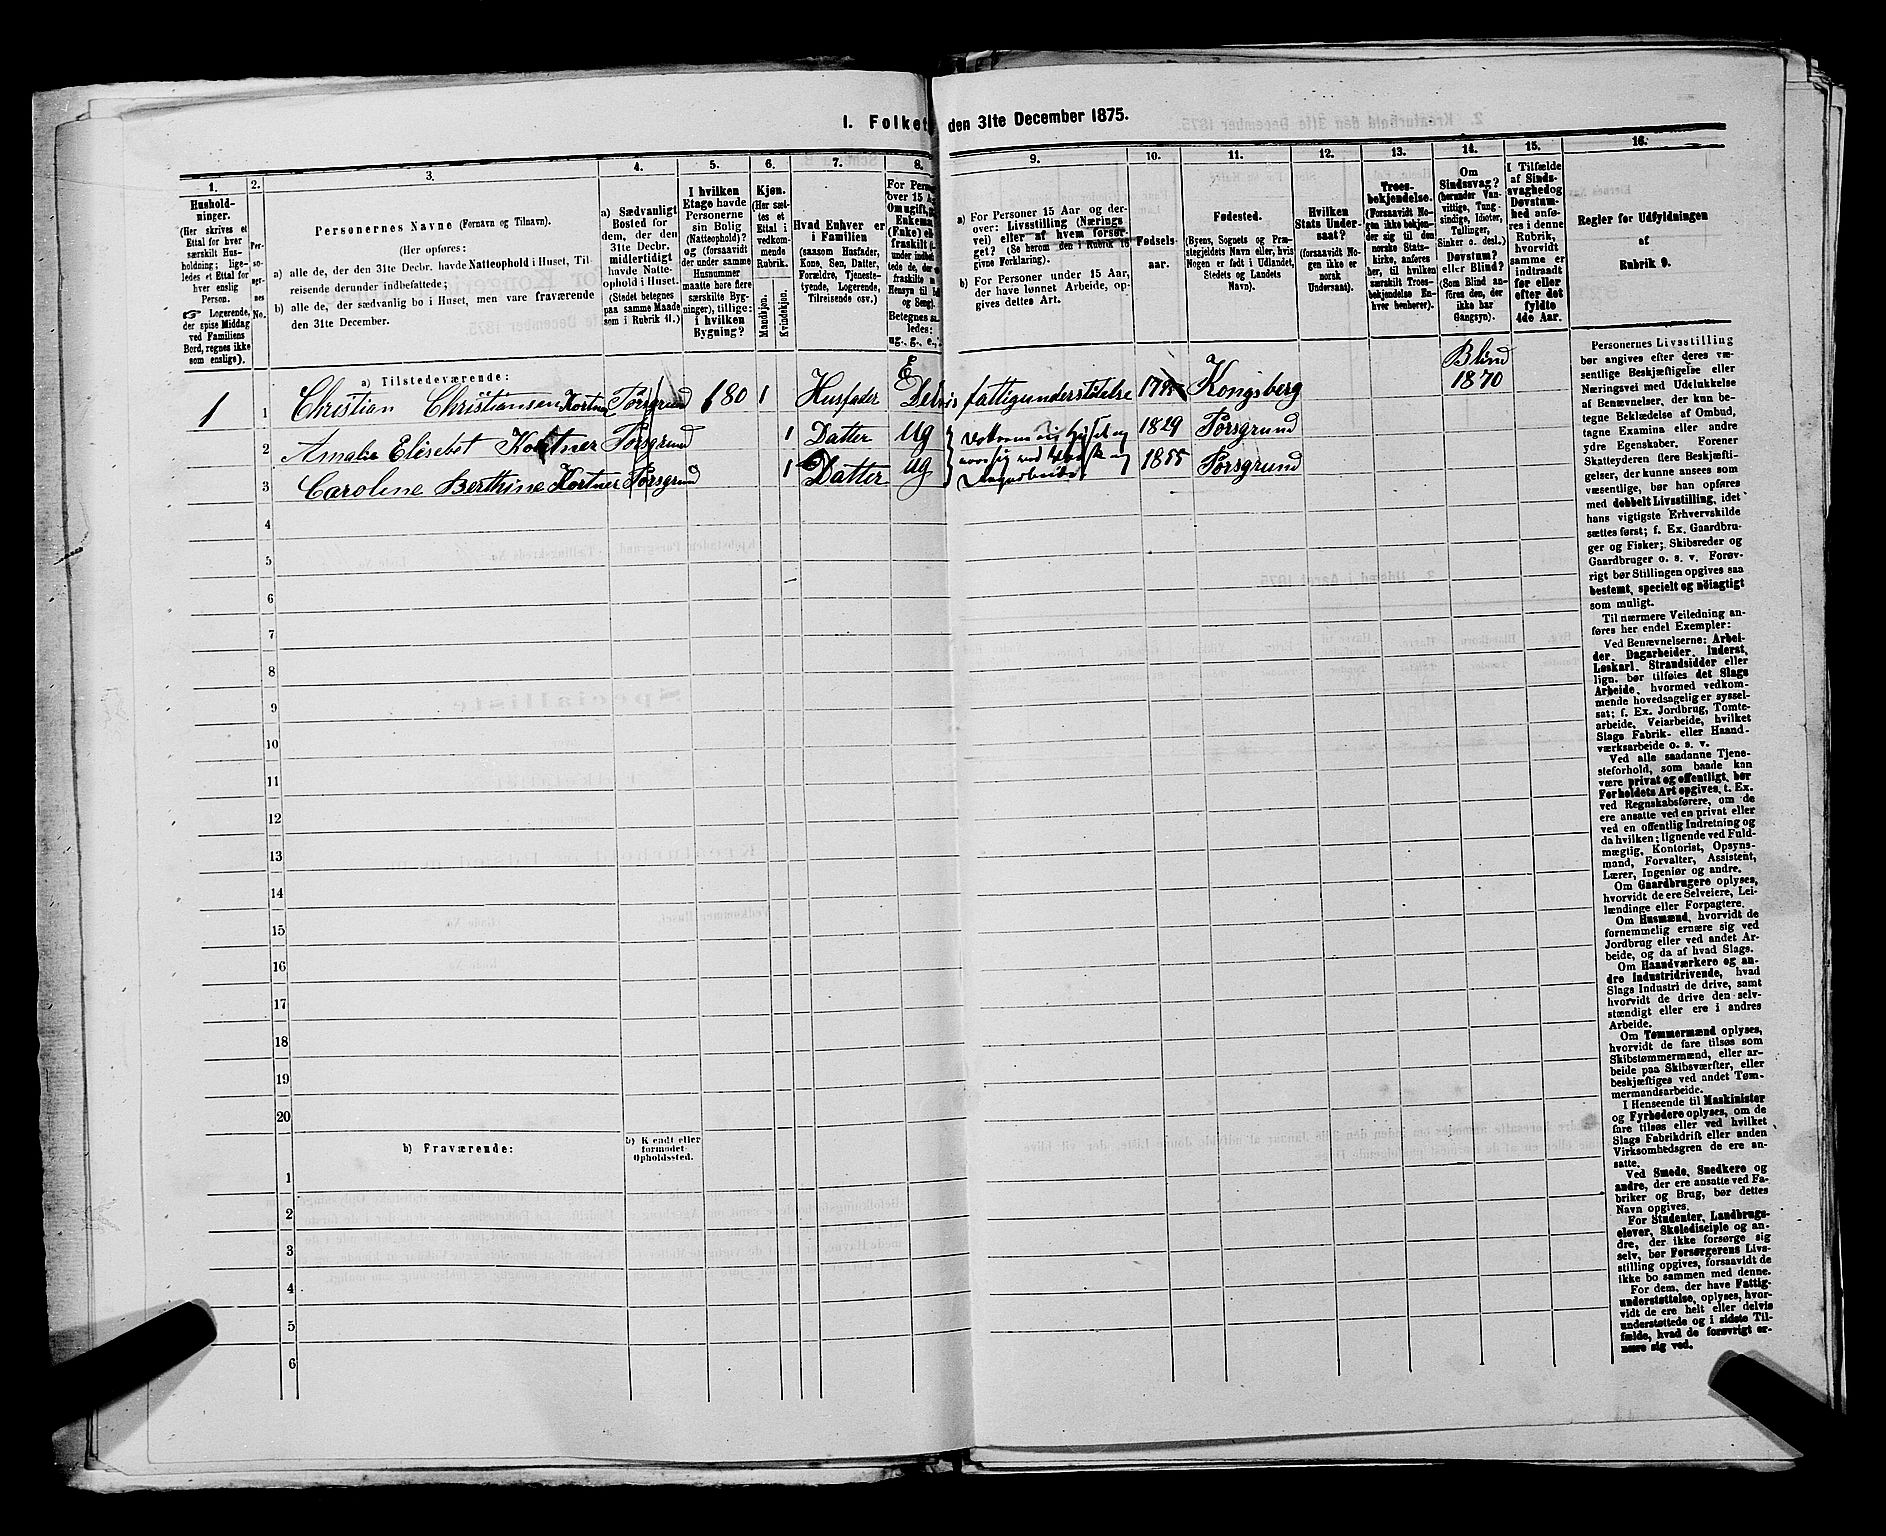 I. Folket den 31te December 1875.
1. 2. 3. 4. 5. 6. 7. 8. 9. 10. 11. 12. 13. 14. 15. 16.
Hushold-
ninger.
(Her skrives et
Ettal for hver
særskilt Hus-
holdning; lige-
ledes et Ettal for
hver enslig
Person.
☞ Logerende,
der spise Middag
ved Familiens
Bord, regnes ikke
som enslige).
Per-
so-
ner-
nes
No.
Personernes Navne (Fornavn og Tilnavn).
(Her opføres:
a) alle de, der den 31te Decbr. havde Natteophold i Huset, Til-
reisende derunder indbefattede;
b) alle de, der sædvanlig bo i Huset, men vare fraværende
den 31te December.
a) Sædvanligt
Bosted for
dem, der den
31te Decbr.
midlertidigt
havde Natte-
ophold i Huset.
(Stedet betegnes
paa samme Maade
som i Rubrik 11.)
I hvilken
Etage havde
Personerne
sin Bolig
(Natteophold)?
og (forsaavidt
der under samme
Husnummer
maatte høre flere
særskilte Byg-
ninger), tillige:
i hvilken
Bygning?
Kjøn.
(Her sæt-
tes et
Ettal i
vedkom-
mende
Rubrik.
Mandkjøn.
Kvindekjøn.
Hvad Enhver er
i Familien
(saasom Husfader,
Kone, Søn, Datter,
Forældre, Tjeneste-
tyende, Logerende,
Tilreisende osv.)
For Perso
over 15 A
Om ugift, g
Enkema
(Enke) el
fraskilt
under indbe
tede de, der
fraskilte
Hensyn til b
og Seng).
Betegnes sa
ledes:
ug., g., e.,
a) For Personer 15 Aar og der-
over: Livsstilling (Nærings
vei) eller af hvem forsør-
get? (Se herom den i Rubrik 16
givne Forklaring).
b) For Personer under 15 Aar,
der have lønnet Arbeide, op-
gives dettes Art.
Fødsels-
aar.
Fødested.
(Byens, Sognets og Præ-
stegjeldets Navn eller, hvis
Nogen er født i Udlandet,
Stedets og Landets
Navn).
Hvilken
Stats Under-
saat?
(forsaavidt No-
gen ikke er
norsk
Undersaat).
Troes-
bekjendelse.
(Forsaavidt No-
gen ikke bekjen-
der sig til den
norske Stats-
kirke, anføres
her, til hvilken
særskilt Troes-
bekjendelse En-
hver henhører).
Om
Sindssvag?
(herunder Van-
vittige, Tung-
sindige, Idioter,
Tullinger,
Sinker o. desl.)
Døvstum?
eller Blind?
(Som Blind an-
føres den, der
ikke har
Gangsyn).
I Tilfælde
af Sinds-
svaghed og
Døvstum-
hed anfø-
res i denne
Rubrik,
hvorvidt
samme er
indtraadt
før eller
efter det
fyldte
4de Aar.
Regler for Udfyldningen
af
Rubrik 9.
a) Tilstedeværende:
1 1 Christian Christiansen Kortner Porsgrund 180 1 Husfader E Delvis fattigunderstøttelse Kongsberg Blind 1870
2 Amalie Elisebet Kortner Porsgrund 1 Datter ug 1829 Porsgrund
3 Caroline Berthine Kortner Porsgrund 1 Datter ug 1855 Porsgrund
4
5
6
7
8
9
10
11
12
13
14
15
16
17
18
19
20
b) Fraværende:
b) Kjendt eller
formodet
Opholdssted.
1
2
3
4
5
6
Personernes Livsstilling
bør angives efter deres væ-
sentlige Beskjæftigelse eller
Næringsvei med Udelukkelse
af Benævnelser, der kun be-
tegne Beklædelse af Ombud,
tagne Examina eller andre
ydre Egenskaber. Forener
Skatteyderen flere Beskjæfti-
gelser, der kunne ansees som
væsentlige, bør han opføres
med dobbelt Livsstilling, idet
hans vigtigste Erhvervskilde
sættes først; f. Ex. Gaardbru-
ger og Fisker; Skibsreder og
Gaardbruger o. s. v. Forøv-
rigt bør Stillingen opgives saa
bestemt, specielt og nøiagtigt
som muligt.
Til nærmere Veiledning an-
føres her endel Exempler:
Ved Benævnelserne: Arbei-
der, Dagarbeider, Inderst,
Løskarl, Strandsidder eller
lign. bør tilføies det Slags
Arbeide, hvormed vedkom-
mende hovedsagelig er syssel-
sat; f. Ex. Jordbrug, Tomte-
arbeide, Veiarbeide, hvilket
Slags Fabrik- eller Haand-
værksarbeide o. s. v.
Ved alle saadanne Tjene-
steforhold, som baade kan
være privat og offentligt, bør
Forholdets Art opgives, t. Ex.
ved Regnskabsførere, om de
ere ansatte ved en privat eller
ved en offentlig Indretning og
da hvilken; lignende ved Fuld-
mægtig, Kontorist, Opsyns-
mand, Forvalter, Assistent,
Lærer, Ingeniør og andre.
Om Gaardbrugere oplyses,
hvorvidt de ere Selveiere, Lei-
lændinge eller Forpagtere.
Om Husmænd, hvorvidt de
fornemmelig ernære sig ved
Jordbrug eller ved andet Ar-
beide, og da af hvad Slags.
Om Haandværkere og an-
dre Industridrivende, hvad
Slags Industri de drive, samt
hvorvidt de drive den selv-
stændigt eller ere i andres
Arbeide.
Om Tømmermænd oplyses,
hvorvidt de fare tilsøs som
Skibstømmermænd, eller ar-
beide paa Skibsværfter, eller
beskjæftiges ved andet Tøm-
mermandsarbeide.
I Henseende til Maskinister
og Fyrbødere oplyses, om de
fare tilsøs eller ved hvilket
Slags Fabrikdrift eller anden
Virksomhedsgren de ere an-
satte.
Ved Smede, Snedkere og
andre, der ere ansatte ved Fa-
briker og Brug, bør dettes
Navn opgives.
For Studenter, Landbrugs-
elever, Skoledisciple og an-
dre, der ikke forsørge sig
selv, bør Forsørgerens Livs-
stilling opgives, forsaavidt de
ikke bo sammen med denne.
For dem, der have Fattig-
understøttelse, oplyses, hvor-
vidt de ere helt eller delvis
understøttede og i sidste Til-
fælde, hvad de forøvrigt er-
nære sig ved.